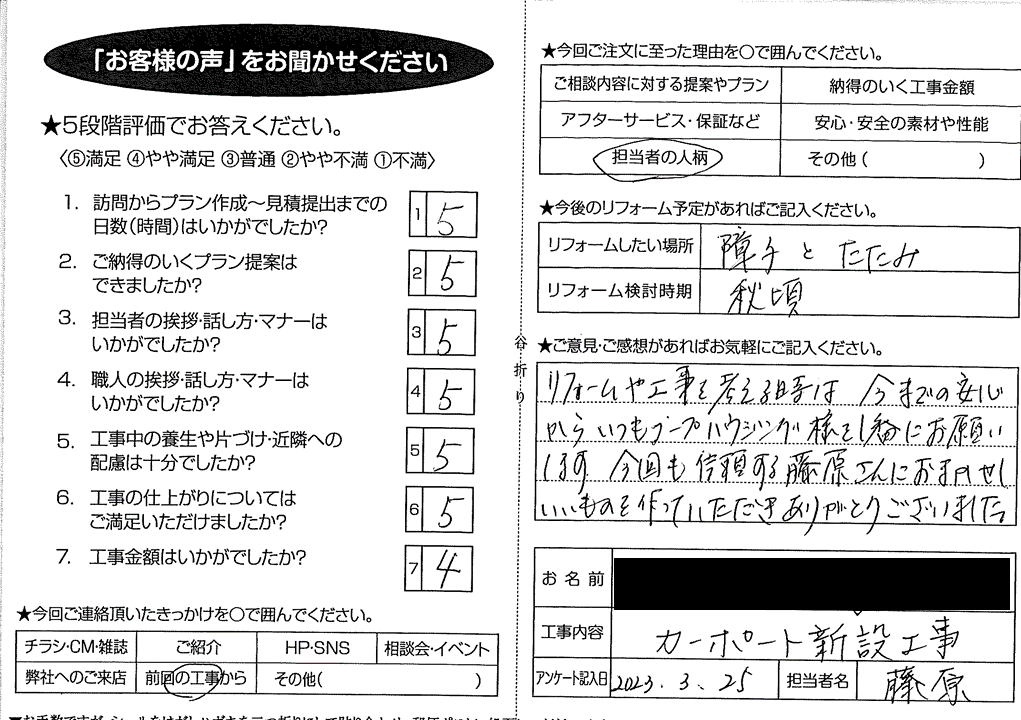 「お客様の声」をお聞かせください
★5段階評価でお答えください。
〈⑤満足 ④やや満足 ③普通 ②やや不満 ①不満〉
1. 訪問からプラン作成～見積提出までの
日数(時間)はいかがでしたか?
1 5
2. ご納得のいくプラン提案は
できましたか?
2 5
3. 担当者の挨拶・話し方・マナーは
いかがでしたか?
3 5
4. 職人の挨拶・話し方・マナーは
いかがでしたか?
4 5
5. 工事中の養生や片づけ・近隣への
配慮は十分でしたか?
5 5
6. 工事の仕上がりについては
ご満足いただけましたか?
6 5
7. 工事金額はいかがでしたか?
7 4
★今回ご連絡頂いたきっかけを○で囲んでください。
チラシ・CM・雑誌 ご紹介 HP・SNS 相談会・イベント
弊社へのご来店 前回の工事から その他( )
谷折り
★今回ご注文に至った理由を○で囲んでください。
ご相談内容に対する提案やプラン 納得のいく工事金額
アフターサービス・保証など 安心・安全の素材や性能
担当者の人柄 その他( )
★今後のリフォーム予定があればご記入ください。
リフォームしたい場所 障子とたたみ
リフォーム検討時期 秋頃
★ご意見・ご感想があればお気軽にご記入ください。
リフォームや工事を考える時は 今までの安心
から いつも ープハウジング様を1番にお願い
します 今回も信頼する藤原さんにおまかせし
いいものを作っていただきありがとうございました
お名前
工事内容 カーポート新設工事
アンケート記入日 2023.3.25 担当者名 藤原